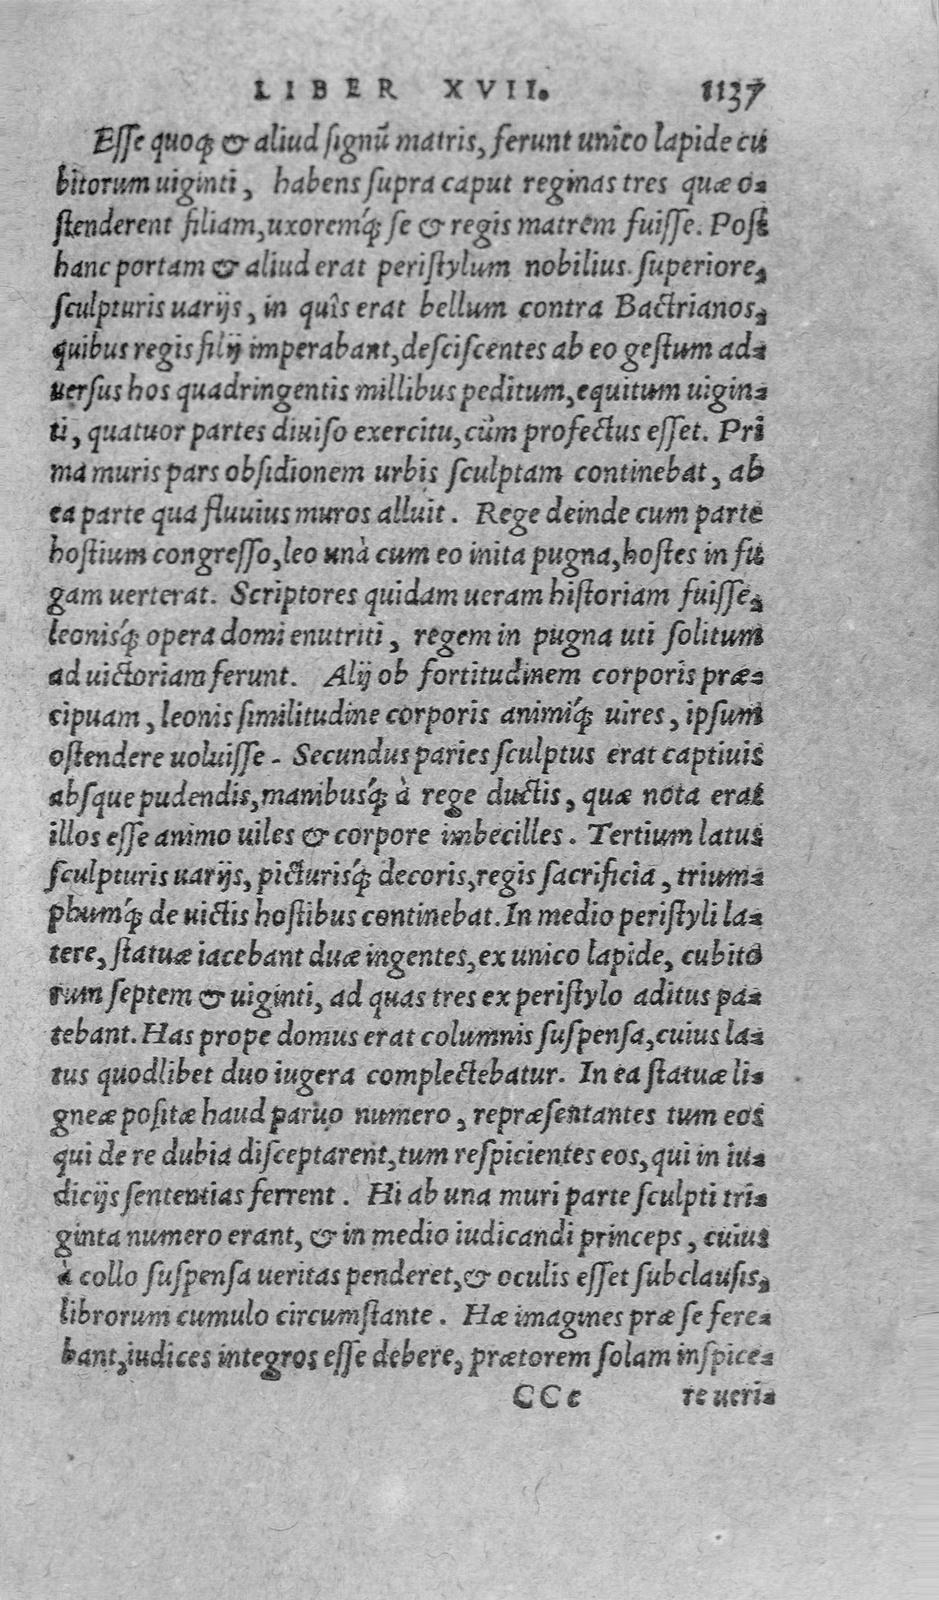 LIBER XVII. 1137
Esse quoq; & aliud signũ matris, ferunt unico lapide cu
bitorum uiginti, habens supra caput reginas tres quæ o-
stenderent filiam, uxoremq́; se & regis matrem fuisse. Post
hanc portam & aliud erat peristylum nobilius superiore,
sculpturis uarijs, in quîs erat bellum contra Bactrianos,
quibus regis filij imperabant, desciscentes ab eo gestum ad-
uersus hos quadringentis millibus peditum, equitum uigin-
ti, quatuor partes diuiso exercitu, cùm profectus esset. Pri
ma muris pars obsidionem urbis sculptam continebat, ab
ea parte qua fluuius muros alluit. Rege deinde cum parte
hostium congresso, leo unà cum eo inita pugna, hostes in fu
gam uerterat. Scriptores quidam ueram historiam fuisse,
leonisq́; opera domi enutriti, regem in pugna uti solitum
ad uictoriam ferunt. Alij ob fortitudinem corporis præ-
cipuam, leonis similitudine corporis animiq́; uires, ipsum
ostendere uoluisse. Secundus paries sculptus erat captiuis
absque pudendis, manibusq́; à rege ductis, quæ nota erat
illos esse animo uiles & corpore imbecilles. Tertium latus
sculpturis uarijs, picturisq́; decoris, regis sacrificia, trium-
phumq́; de uictis hostibus continebat. In medio peristyli la-
tere, statuæ iacebant duæ ingentes, ex unico lapide, cubito
rum septem & uiginti, ad quas tres ex peristylo aditus pa-
tebant. Has prope domus erat columnis suspensa, cuius la-
tus quodlibet duo iugera complectebatur. In ea statuæ li-
gneæ positæ haud paruo numero, repræsentantes tum eos
qui de re dubia disceptarent, tum respicientes eos, qui in iu-
dicijs sententias ferrent. Hi ab una muri parte sculpti tri-
ginta numero erant, & in medio iudicandi princeps, cuius
à collo suspensa ueritas penderet, & oculis esset subclausis,
librorum cumulo circumstante. Hæ imagines præ se fere-
bant, iudices integros esse debere, prætorem solam inspice-
CCc re ueri-